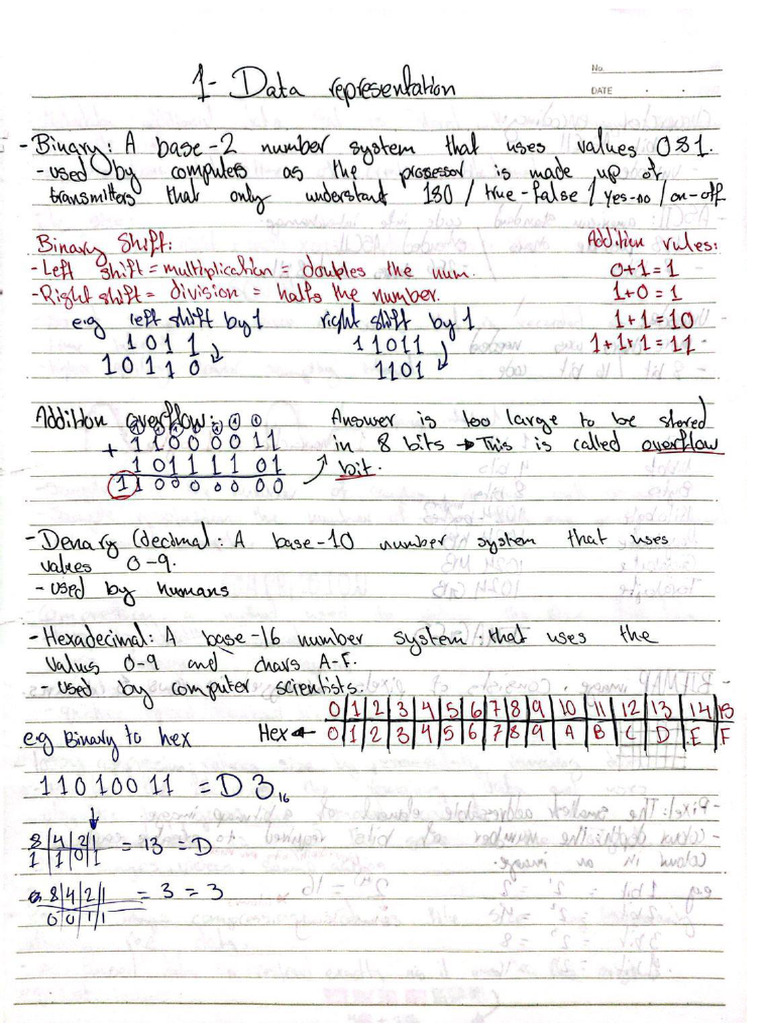 No.
DATE
1- Data representation
- Binary: A base-2 number system that uses values 0&1.
- used by computers as the prosessor is made up of
transmitters that only understand 1&0 / true-false / yes-no / on-off
Binary Shift:
- Left shift = multiplication = doubles the num.
- Right shift = division = halfs the number.
e.g left shift by 1
1 0 1 1
1 0 1 1 0
right shift by 1
1 1 0 1 1
1101
Addition rules:
0+1=1
1+0=1
1+1=10
1+1+1=11
Addition overflow:
+ 1 1 0 0 0 0 1 1
1 0 1 1 1 1 0 1
1 0 0 0 0 0 0 0
Answer is too large to be stored
in 8 bits → This is called overflow
bit.
- Denary (decimal: A base-10 number system that uses
values 0-9.
- used by humans
- Hexadecimal: A base-16 number system that uses the
values 0-9 and chars A-F.
- used by computer scientists.
0 1 2 3 4 5 6 7 8 9 10 11 12 13 14 15
Hex ← 0 1 2 3 4 5 6 7 8 9 A B C D E F
e.g Binary to hex
1101 0011 = D 3 16
8 4 2 1
1 1 0 1 = 13 = D
8 4 2 1 = 3 = 3
0 0 1 1